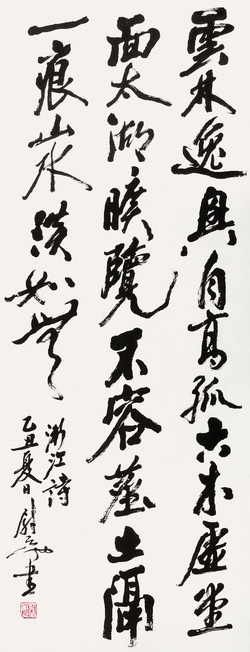 雲林逸興自高孤古木虛堂
面太湖曠覽不容塵土隔
一痕山水淡如無
漸江詩
乙丑夏日書